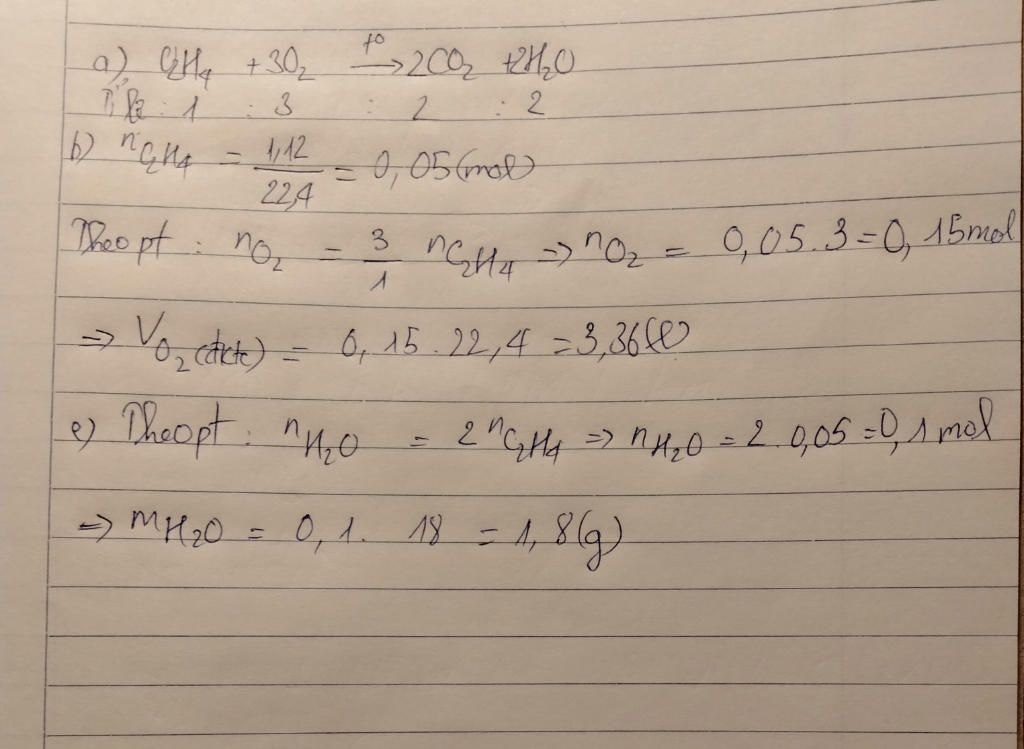 a) C2H4 + 3O2 t°→ 2CO2 + 2H2O
Tỉ lệ : 1 : 3 : 2 : 2
b) nC2H4 = 1,12/22,4 = 0,05(mol)
Theo pt : nO2 = 3/1 nC2H4 => nO2 = 0,05.3=0,15mol
=> VO2(đktc) = 0,15.22,4 =3,36(l)
c) Theo pt : nH2O = 2 nC2H4 => nH2O = 2.0,05=0,1mol
=> mH2O = 0,1. 18 = 1,8(g)